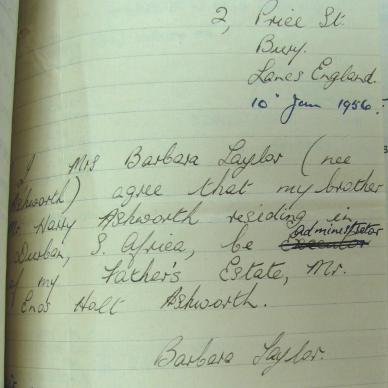 2, Price St.
Bury.
Lancs England.
10 Jan 1956.
I Mrs Barbara Taylor (nee
Ashworth) agree that my brother
Mr. Harry Ashworth residing in
Durban, S. Africa, be Executor administrator
of my Father's Estate, Mr.
Enos Holt Ashworth.
Barbara Taylor.